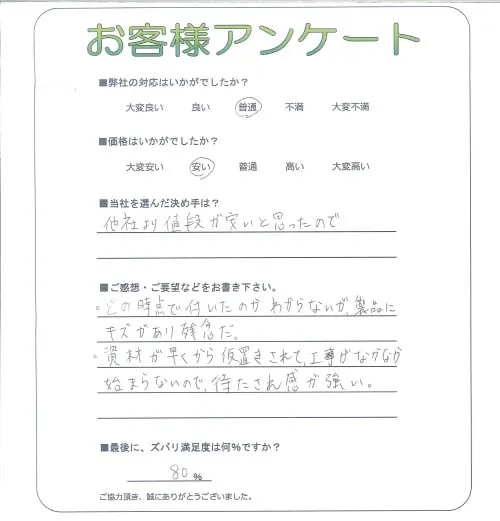 お客様アンケート
■弊社の対応はいかがでしたか?
大変良い 良い 普通 不満 大変不満
■価格はいかがでしたか?
大変安い 安い 普通 高い 大変高い
■当社を選んだ決め手は?
他社より値段が安いと思ったので
■ご感想・ご要望などをお書き下さい。
・どの時点で付いたのかわからないが、製品に
キズがあり残念だ。
・資材が早くから仮置きされて、工事がなかなか
始まらないので、待たされ感が強い。
■最後に、ズバリ満足度は何%ですか?
80%
ご協力頂き、誠にありがとうございました。